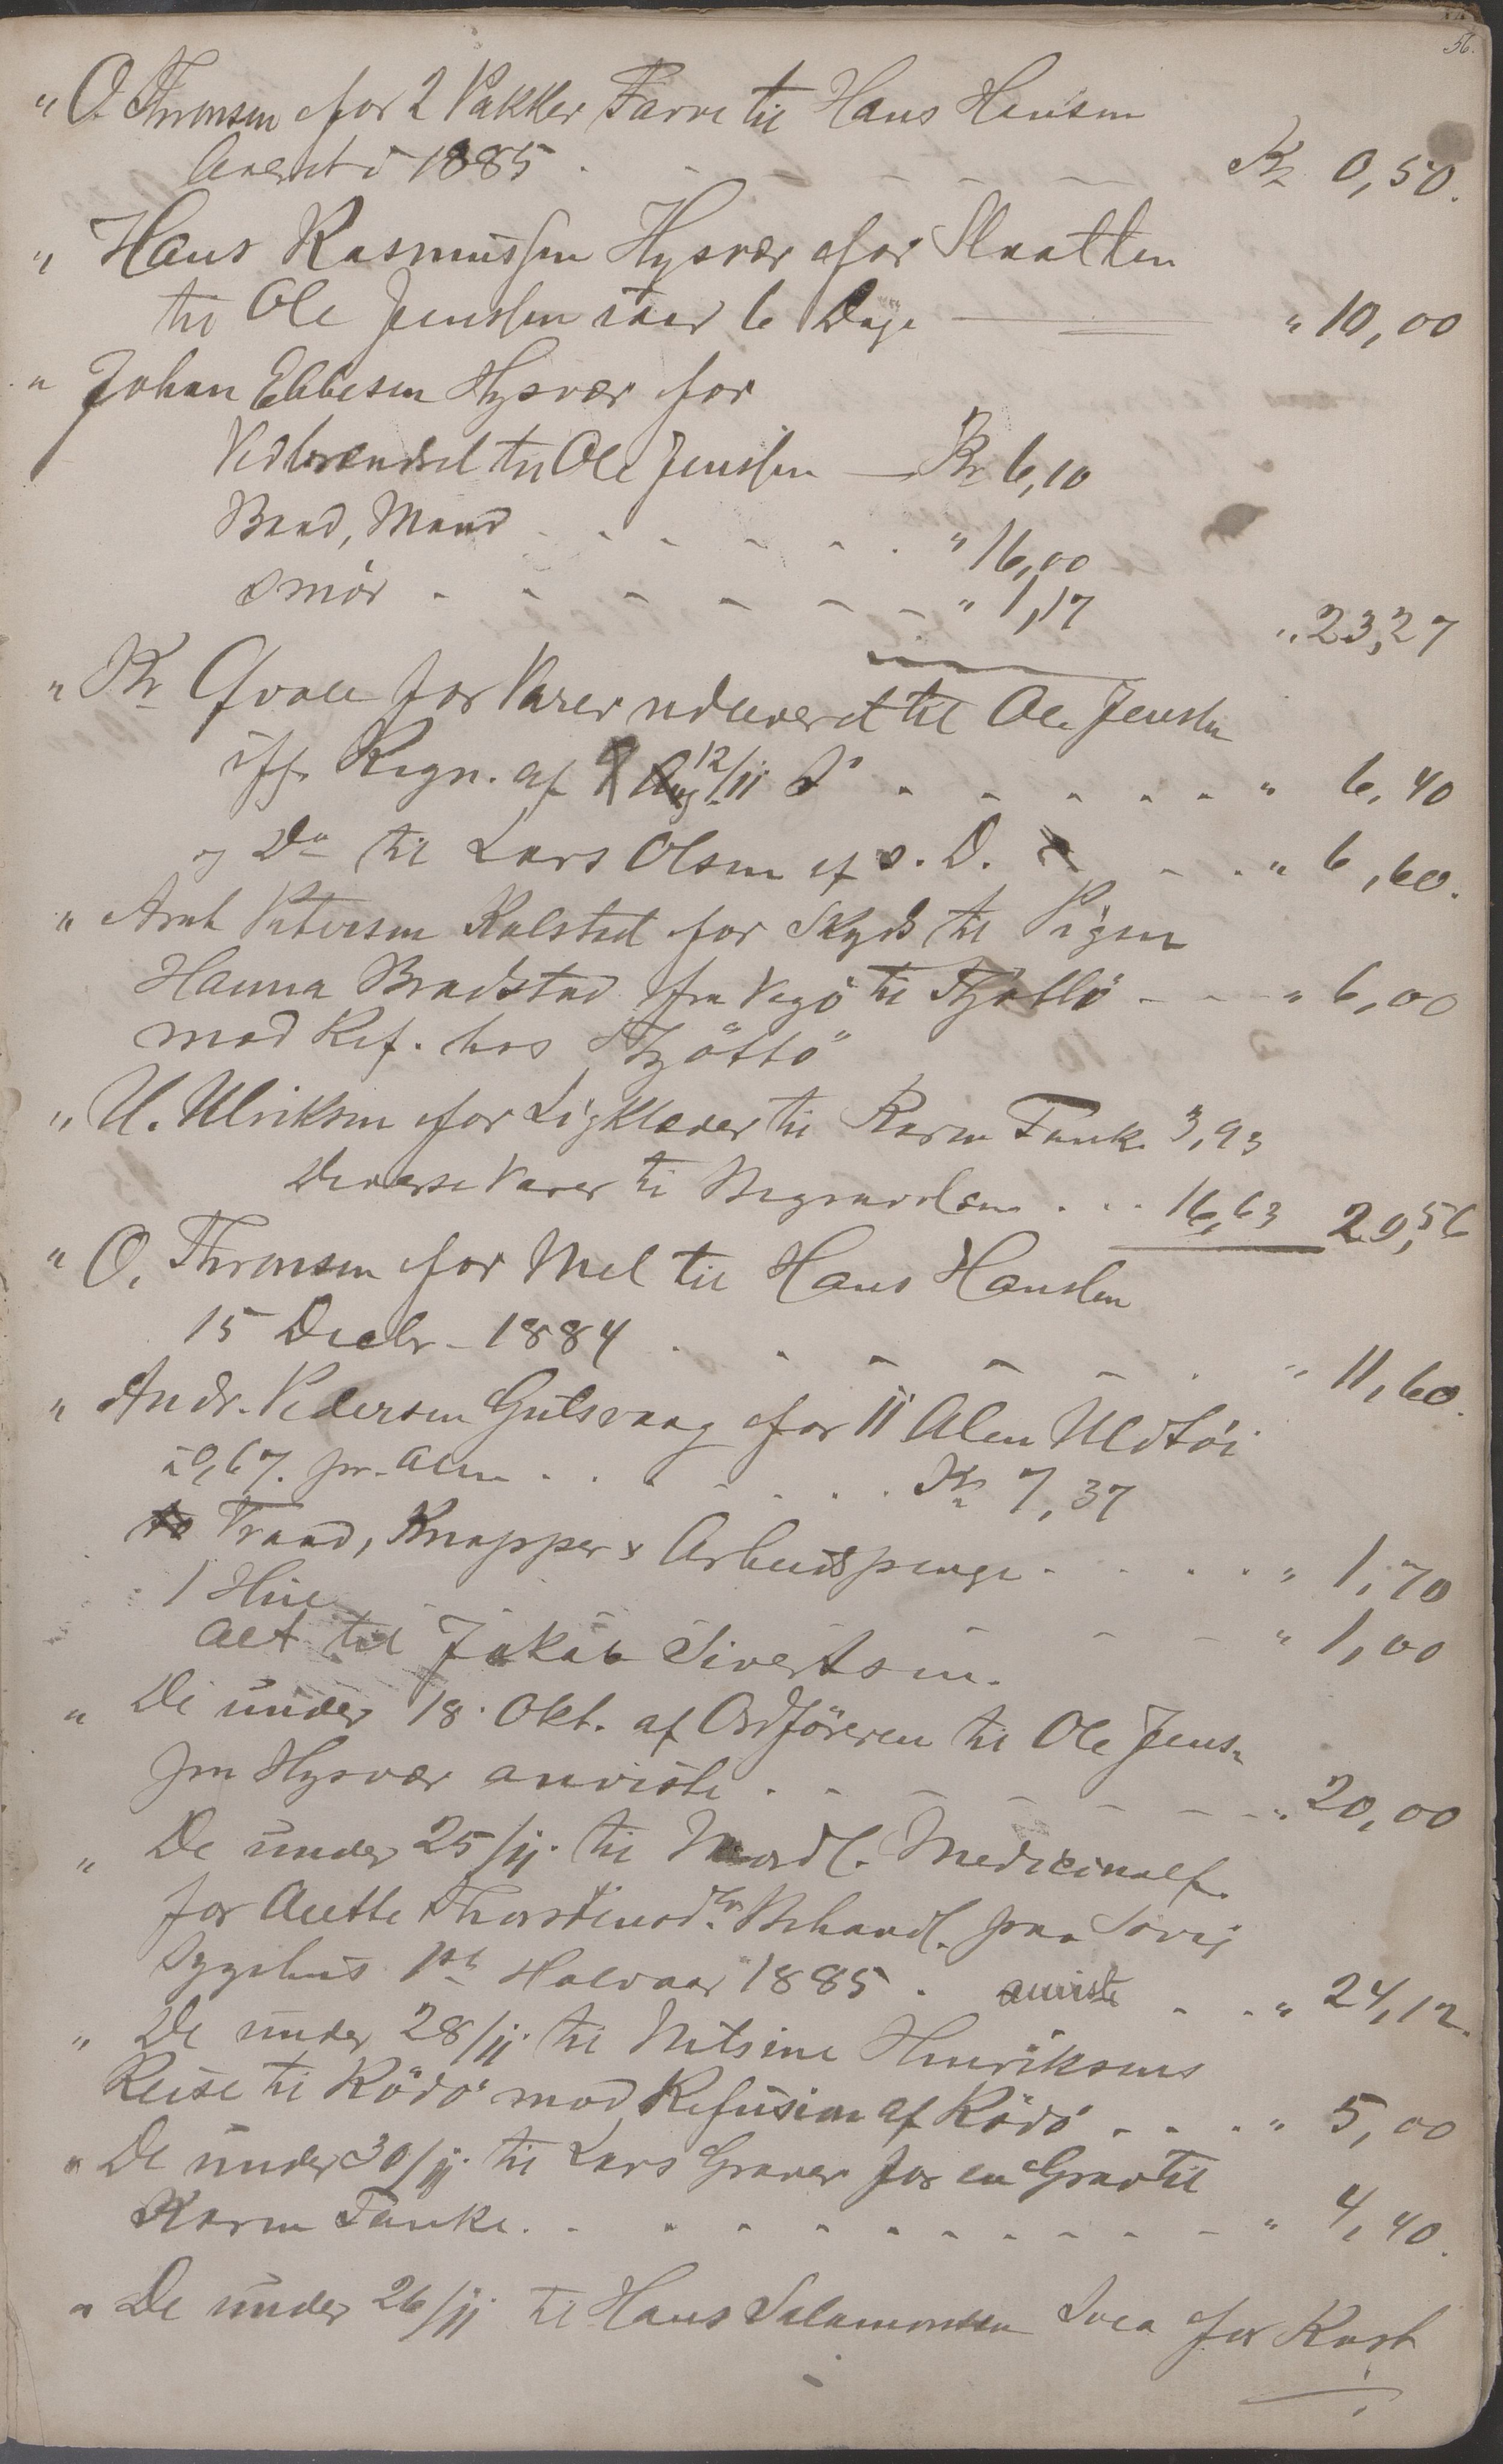 56.
" O. Thronsen for 2 Pakker Farve til Hans Hansen
1885 . - - - - - Kr 0,50.
" Hans Rasmussen Hysvær for Slaatten
til Ole Jenssen 6 Dage " 10,00
" Johan Ebbesen Hysvær for
Vedbrændsel til Ole Jenssen — Kr 6,10
Baad, Mand - - - - - . " 16,00
Smør - - - - - - " 1,17 " 23,27
" Kr Qvale for Varer udleveret til Ole Jenssen
iflg. Regn. af 12/11 d' - - - - - - " 6,40
og Do til Lars Olsen af s. D. - . " 6,60.
" Arnt Petersen Kalstad for Skyds til Pigen
Hanna Bradstad fra Vegø til Tjøttø - - - " 6,00
mod Ref. hos Tjøttø
" U. Ulriksen for Ligklæder til Karen Tanke 3,93
Diverse Varer til Begravelsen . . . 16,63 20,56
" O. Thronsen for Mel til Hans Hanssen
15 Decbr - 1884 . - - - - . " 11,60.
" Andr. Pedersen Gulsvaag for 11 Alen Uldtøi
à 0,67. pr. Alen . . . - . . . Kr 7,37
Traad, Knapper & Arbeidspenge - . . . " 1,70
1 Hue - - - - - " 1,00
alt til Jakob Sivertsen.
" De under 18. Okt. af Ordføreren til Ole Jens-
sen Hysvær anviste . - - - - - - " 20,00
" De under 25/11. til Nordl. Medicinalf.
for Anette Thorstensdtr Behandl. paa Søvig
Sygehus 1ste Halvaar 1885 . anviste - . " 24,12.
" De under 28/11. til Nilsine Henriksens
Reise til Rödö mod Refusion af Rödö . - . " 5,00
" De under 30/11. til Lars Graver for en Grav til
Karen Tanke. - - - - - - - - - " 4,40.
" De under 26/11 til Hans Salamonsen for Kost